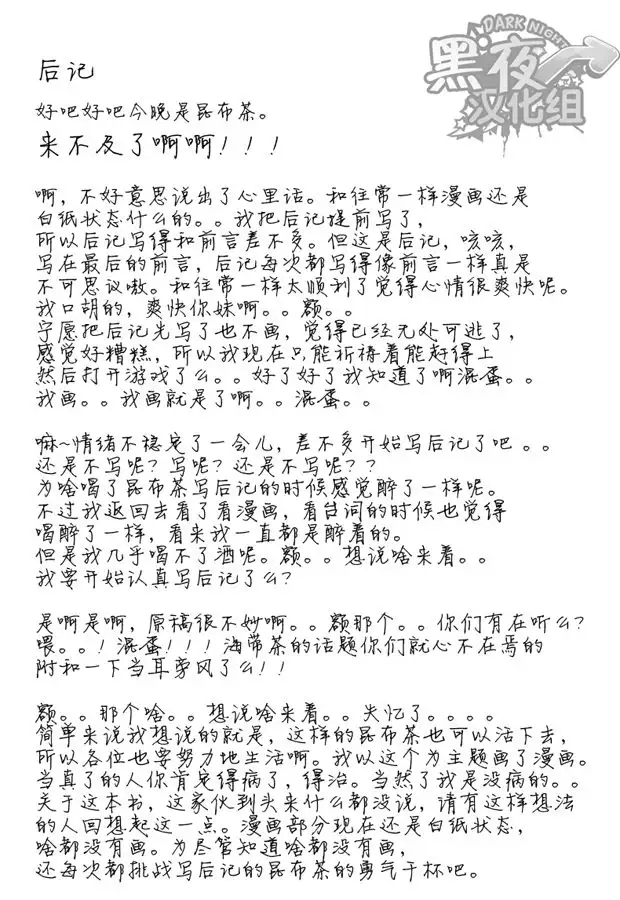 DARK NIGHT
黑夜
汉化组
后记
好吧好吧今晚是昆布茶。
来不及了啊啊！！！
啊，不好意思说出了心里话。和往常一样漫画还是
白纸状态什么的。。我把后记提前写了，
所以后记写得和前言差不多。但这是后记，咳咳，
写在最后的前言，后记每次都写得像前言一样真是
不可思议嗷。和往常一样太顺利了觉得心情很爽快呢。
我口胡的，爽快你妹啊。。额。。
宁愿把后记先写了也不画，觉得已经无处可逃了，
感觉好糟糕，所以我现在只能祈祷着能赶得上
然后打开游戏了么。。好了好了我知道了啊混蛋。。
我画。。我画就是了啊。。混蛋。。
嘛~情绪不稳定了一会儿，差不多开始写后记了吧。。
还是不写呢？写呢？还是不写呢？？
为啥喝了昆布茶写后记的时候感觉醉了一样呢。
不过我返回去看了看漫画，看台词的时候也觉得
喝醉了一样，看来我一直都是醉着的。
但是我几乎喝不了酒呢。额。。想说啥来着。。
我要开始认真写后记了么？
是啊是啊，原稿很不妙啊。。额那个。。你们有在听么？
喂。。！混蛋！！！海带茶的话题你们就心不在焉的
附和一下当耳旁风了么！！
额。。那个啥。。想说啥来着。。失忆了。。。。
简单来说我想说的就是，这样的昆布茶也可以活下去，
所以各位也要努力地生活啊。我以这个为主题画了漫画。
当真了的人你肯定得病了，得治。当然了我是没病的。。
关于这本书，这家伙到头来什么都没说，请有这样想法
的人回想起这一点。漫画部分现在还是白纸状态，
啥都没有画。为尽管知道啥都没有画，
还每次都挑战写后记的昆布茶的勇气干杯吧。